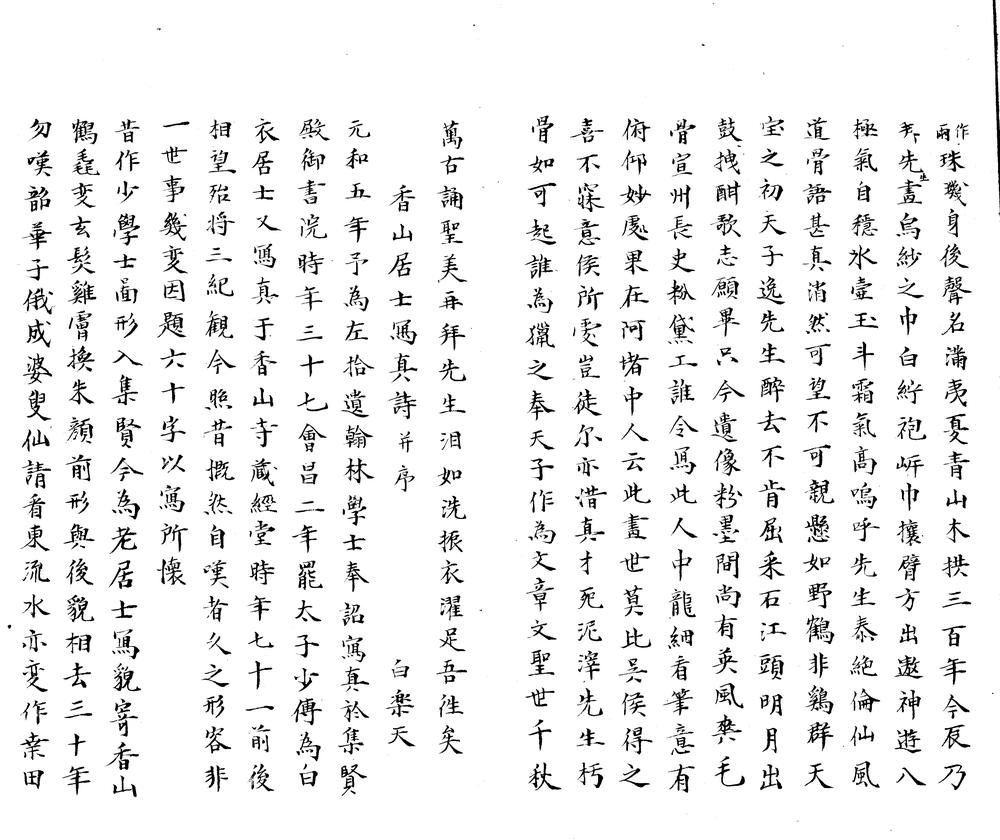 兩作珠璣身後聲名滿夷夏青山木拱三百年今辰乃
先生畫烏紗之巾白紵袍岸巾攘臂方出遨神遊八
極氣自穩氷壺玉斗霜氣高嗚呼先生泰絶倫仙風
道骨語甚真消然可望不可親懸如野鶴非鷄群天
宝之初天子逸先生醉去不肯屈采石江頭明月出
鼓拽酣歌志願畢只今遺像粉墨間尚有英風爽毛
骨宣州長史粉黛工誰令寫此人中龍細看筆意有
俯仰妙處果在阿堵中人云此畫世莫比吴侯得之
喜不寐意侯所寶豈徒尔亦惜真才死泥滓先生朽
骨如可起誰為獵之奉天子作為文章文聖世千秋
萬古誦聖美再拜先生泪如洗振衣濯足吾往矣
香山居士寫真詩并序 白楽天
元和五年予為左拾遺翰林學士奉詔寫真於集賢
殿御書院時年三十七會昌二年罷太子少傅為白
衣居士又寫真于香山寺蔵經堂時年七十一前後
相望殆将三紀観今照昔慨然自嘆者久之形容非
一世事幾変因題六十字以寫所懐
昔作少學士畐形入集賢今為老居士寫貌寄香山
鶴毳変玄髮雞膚換朱顔前形與後貌相去三十年
勿嘆韶華子俄成婆叟仙請看東流水亦変作桒田